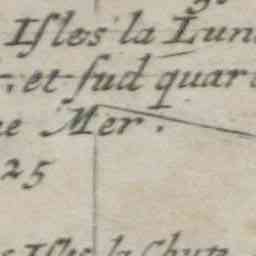 Isles la Lun
et sud quar
Mer.
25
Isles la Chun